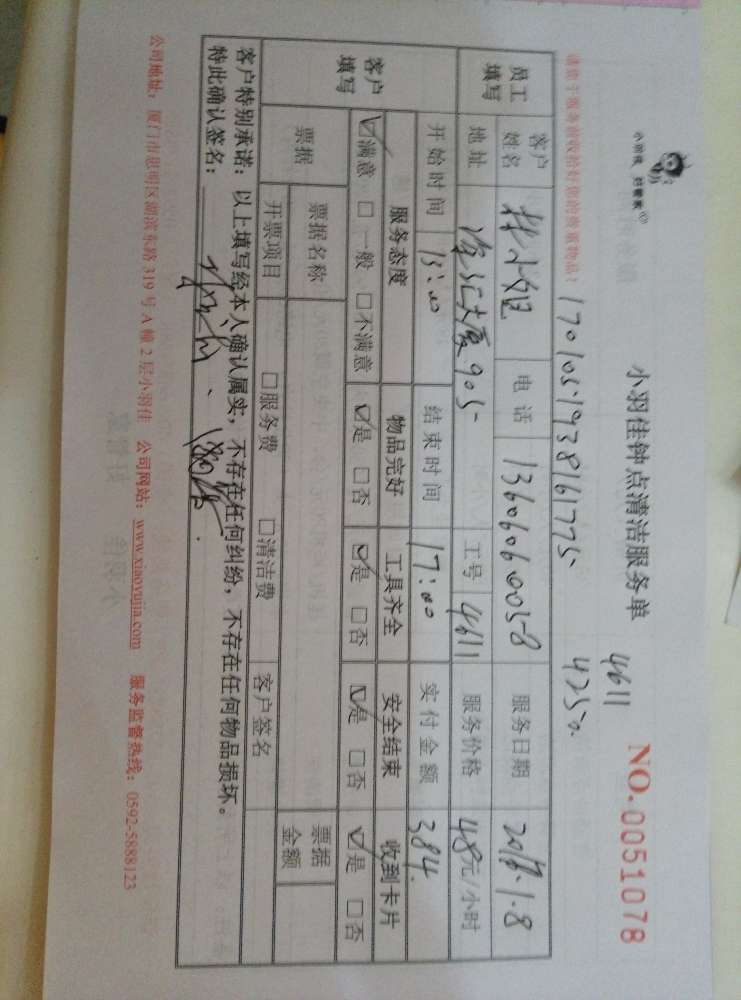 小羽佳钟点清洁服务单
NO.0051078
4611
4250
170105193816177S
员工填写
客户姓名 林小姐 电话 13606060058 服务日期 2017.1.8
地址 大厦905 工号 4611 服务价格 48元/小时
开始时间 13:00 结束时间 17:00 实付金额 384
客户填写
服务态度 物品完好 工具齐全 安全结束 收到卡片
☑满意 □一般 □不满意 ☑是 □否 ☑是 □否 ☑是 □否 ☑是 □否
票据 票据名称 票据金额
开票项目 □服务费 □清洁费 客户签名
客户特别承诺:以上填写经本人确认属实,不存在任何纠纷,不存在任何物品损坏。
特此确认签名:
公司地址:厦门市思明区湖滨东路319号A幢2层小羽佳 公司网站:www.xiaoyujia.com 服务监督热线:0592-5888123